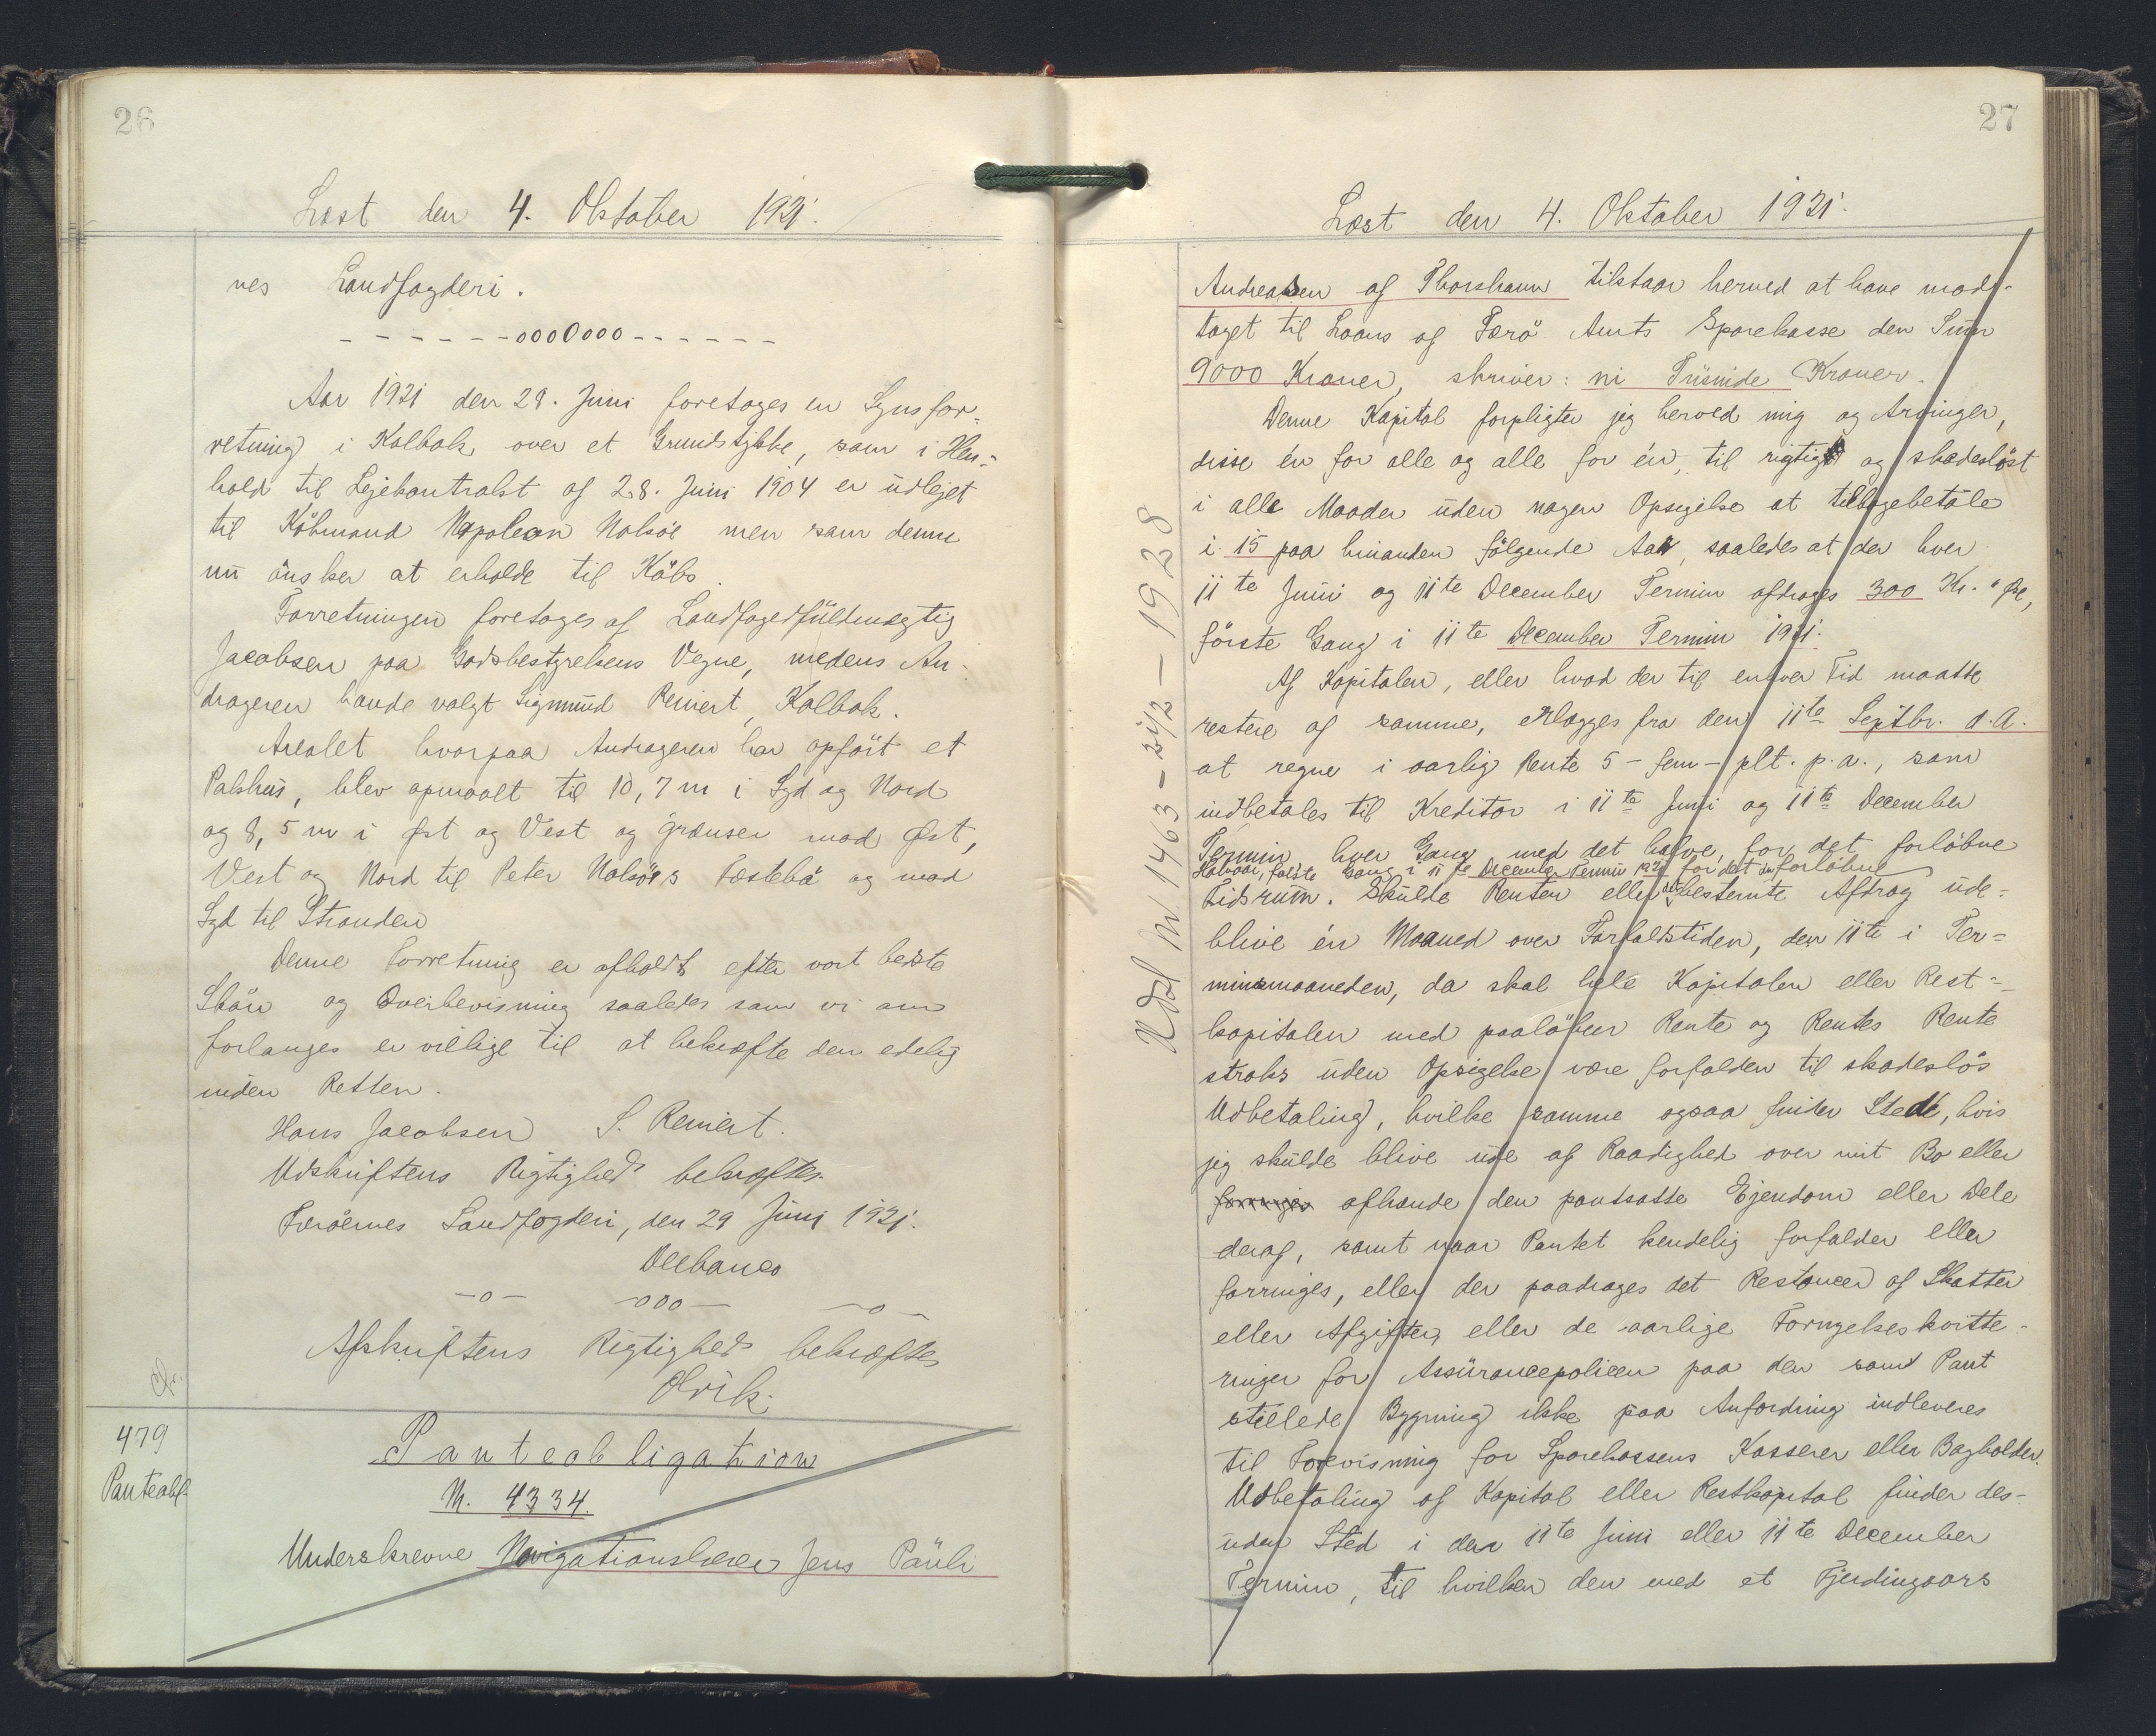 26
Læst den 4. Oktober 1921.
nes Landfogderi.
- - - - - - -ooo0ooo- - - - - -
Aar 1921 den 28. Juni foretoges en Synsfor-
retning i Kolbak over et Grundstykke, som i Hen-
hold til Lejekontrakt af 28. Juni 1904 er udlejet
til Köbmand Napolean Nolsöe men som denne
nu önsker at erholde til Köbs.
Forretningen foretoges af Landfogedfuldmægtig
Jacobsen paa Godsbestyrelsens Vegne, medens An-
drageren havde valgt Sigmund Reinert, Kolbak.
Arealet hvorpaa Andrageren har opfört et
Pakhus, blev opmaalt til 10,7 m i Syd og Nord
og 8,5 m i Øst og Vest og grænser mod Øst,
Vest og Nord til Peter Nolsöes Fæstebö og mod
Syd til Stranden
Denne Forretning er afholdt efter vort bedste
Skön og Overbevisning saaledes som vi om
forlanges er villige til at bekræfte den edelig
inden Retten.
Hans Jacobsen S. Reinert.
Udskriftens Rigtighed bekræftes.
Færöernes Landfogderi, den 29 Juni 1921.
-o- -ooo- -o-
Afskriftens Rigtighed bekræftes
479
Panteobl.
Panteobligation
N. 4334.
Underskrevne Navigationslærer Jens Pauli
27
Læst den 4. Oktober 1921.
Andreasen af Thorshavn tilstaar herved at have mod-
taget til Laans af Færö Amts Sparekasse den Sum
9000 Kroner, skriver: ni Tusinde Kroner.
Denne Kapital forpligter jeg herved mig og Arvinger,
disse én for alle og alle for én, til rigtigt og skadeslöst
i alle Maader uden nogen Opsigelse at tilbagebetale
i 15 paa hinanden fölgende Aar, saaledes at der hver
11te Juni og 11te December Termin afdrages 300 Kr. " Øre,
förste Gang i 11te December Termin 1921.
Af Kapitalen, eller hvad der til enhver Tid maatte
restere af samme, erlægges fra den 11te Septbr. d.A.
at regne i aarlig Rente 5 - fem - pCt. p.a., som
indbetales til Kreditor i 11te Juni og 11te December
Termin hver Gang med det halve, for det forløbne
Halvaar, förste Gang i 11te December Termin 1921 for det da forløbne
Tidsrum. Skulde Renten eller det bestemte Afdrag ude-
blive én Maaned over Forfaldstiden, den 11te i Ter-
minsmaaneden, da skal hele Kapitalen eller Rest-
kapitalen med paaløben Rente og Rentes Rente
straks uden Opsigelse være forfalden til skadeslös
Udbetaling, hvilke samme ogsaa finder Sted, hvis
jeg skulde blive ude af Raadighed over mit Bo eller
forringes afhænde den pantsatte Ejendom eller Dele
deraf, samt naar Pantet kendelig forfalder eller
forringes, eller der paadrages det Restancer af Skatter
eller Afgifter, eller de aarlige Fornyelseskvitte-
ringer for Assurancepolicen paa den som Pant
stillede Bygning ikke paa Anfordring indleveres
til Forevisning for Sparekassens Kasserer eller Bogholder.
Udbetaling af Kapital eller Restkapital finder des-
uden Sted i den 11te Juni eller 11te December
Termin, til hvilken den med et Fjerdingaars
Udsl N. 1463 - 21/2 - 1928